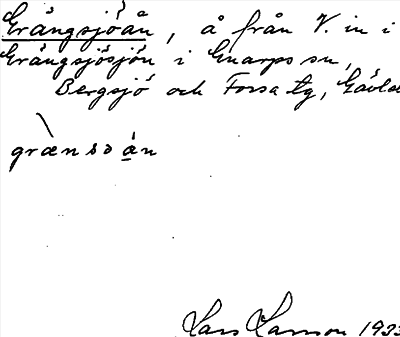 Grängsjöån, å från V. in i
Grängsjösjön i Gnarps sn,
Bergsjö och Forsa tg, Gävle
grænsoán
Lars Larsson 1933